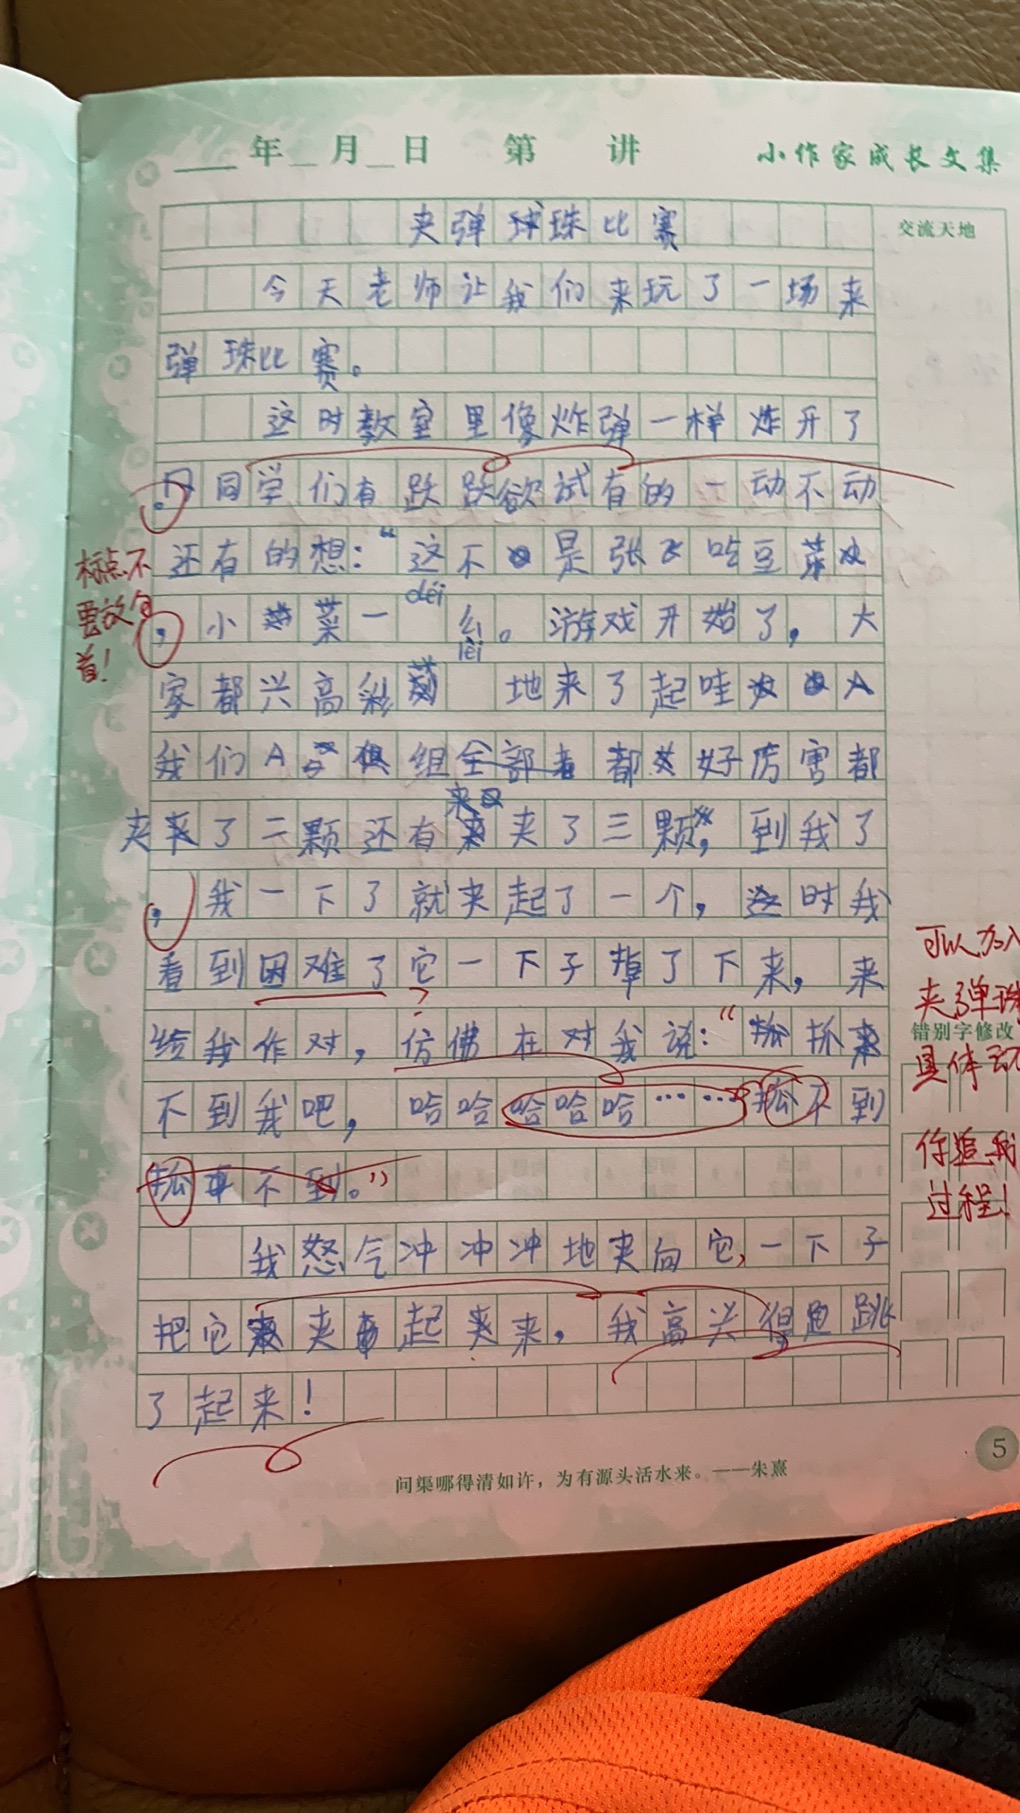 年 月 日 第 讲 小作家成长文集
交流天地
夹弹珠比赛
今天老师让我们来玩了一场来
弹珠比赛。
这时教室里像炸弹一样炸开了
。同学们有跃跃欲试有的一动不动
还有的想：“这不是张 吃豆菜
，小菜一 déi 么。游戏开始了，大
家都兴高彩 lèi 地来了起哇
我们A组都好厉害都
夹了二颗还有夹了三颗，到我了
，我一下了就夹起了一个，这时我
看到困难了它一下子掉了下来，来
给我作对，仿佛在对我说：“抓
不到我吧，哈哈哈哈哈……抓不到
抓不到。”
我怒气冲冲冲地夹向它，一下子
把它夹起来，我高兴得跳
了起来！
标点不
要放句
首！
可以加入
夹弹珠
错别字修改
具体动
你追我
过程！
问渠哪得清如许，为有源头活水来。——朱熹
5